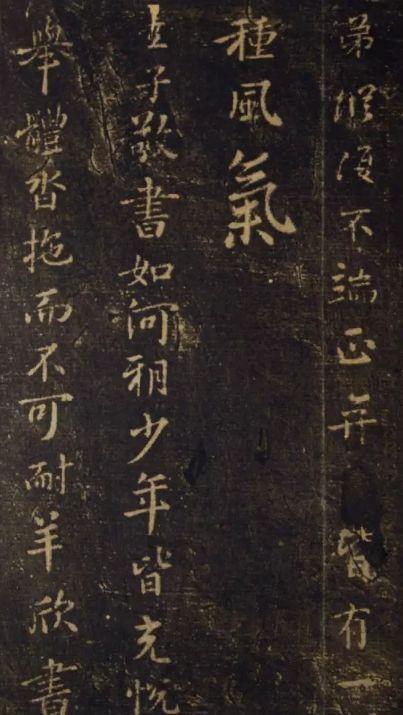 弟縱復不端正皆有一
種風氣
王子敬書如河朔少年皆充悅
舉體沓拖而不可耐羊欣書